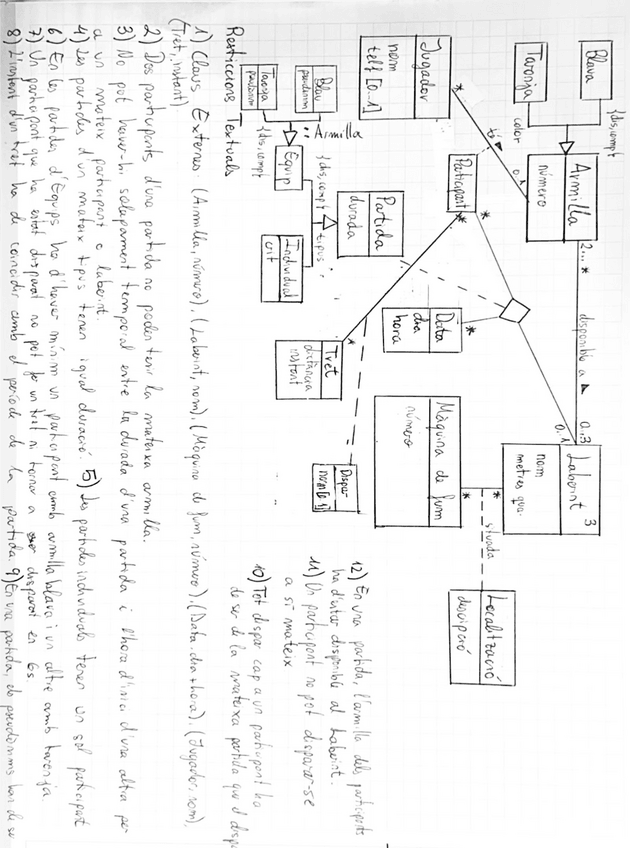 Blava
Taronja
{dis, compt
color
Armilla
número
2...*
disponible a
0..3
Laberint
3
nom
metres qua.
situada
Localització
descripció
Jugador
nom
telf [0..1]
*
0..1
Participant
*
*
0..1
Data
dia
hora
*
Màquina de fum
número
*
*
Partida
durada
{dis, compt
tipus
Equip
Individual
{dis, compt
Armilla
Blau
pseudònim
Taronja
pseudònim
Tret
distància
instant
*
Dispar
Restriccions Textuals
1) Claus Externes: (Armilla, número), (Laberint, nom), (Màquina de fum, número), (Data, dia + hora), (Jugador, nom),
(Tret, instant)
2) Dos participants d'una partida no poden tenir la mateixa armilla.
3) No pot haver-hi solapament temporal entre la durada d'una partida i l'hora d'inici d'una altra pe-
a un mateix participant o laberint.
4) Les partides d'un mateix tipus tenen igual duració. 5) Les partides individuals tenen un sol participant
6) En les partides d'Equips ha d'haver mínim un participant amb armilla blava i un altre amb taronja.
7) Un participant que ha estat disparat no pot fer un tret ni tornar a ser disparat en 6s
8) L'instant d'un tret ha de coincidir amb el període de la partida. 9) En una partida, els pseudònims han de se
12) En una partida, l'armilla dels participants
ha d'estar disponible al Laberint.
11) Un participant no pot disparar-se
a si mateix
10) Tot dispar cap a un participant ha
de ser de la mateixa partida que el dispa